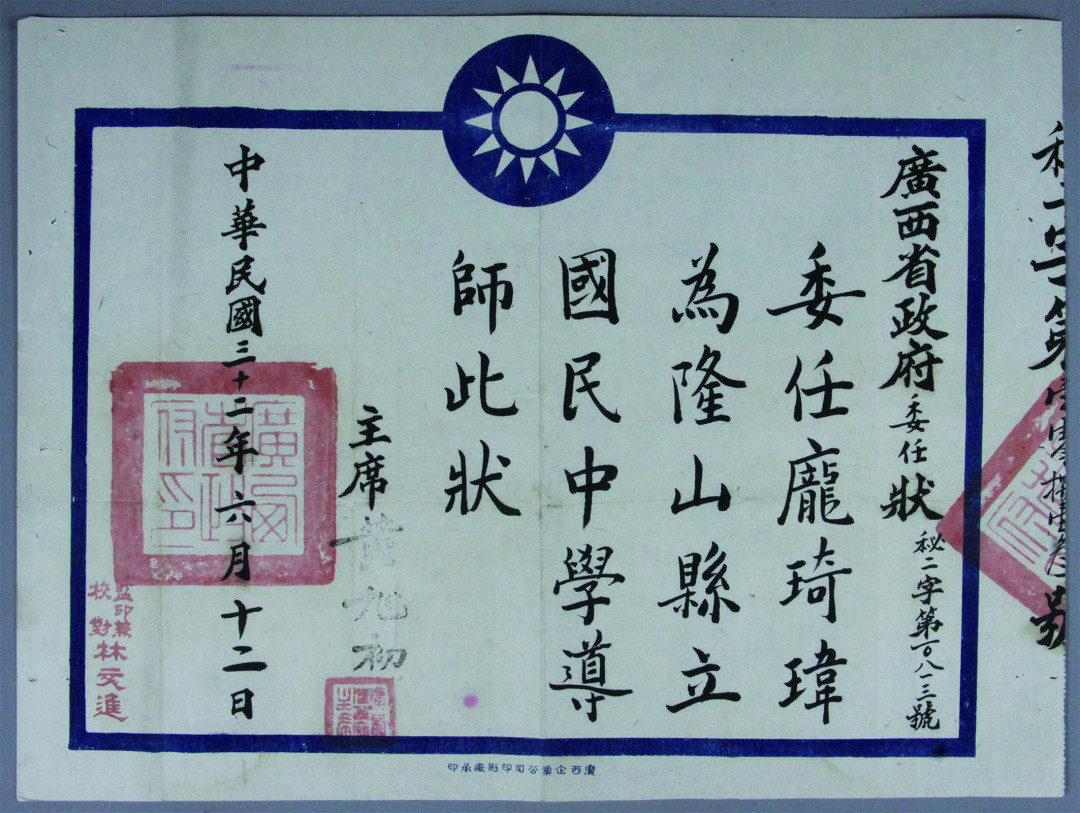 秘二字第壹零捌壹叁號
廣西省政府委任狀
秘二字第一〇八一三號
委任龐琦瑋
為隆山縣立
國民中學導
師此狀
主席
黃旭初
中華民國三十二年六月十二日
廣西省政府印
監印兼
校對
林文進
廣西企業公司印刷廠承印